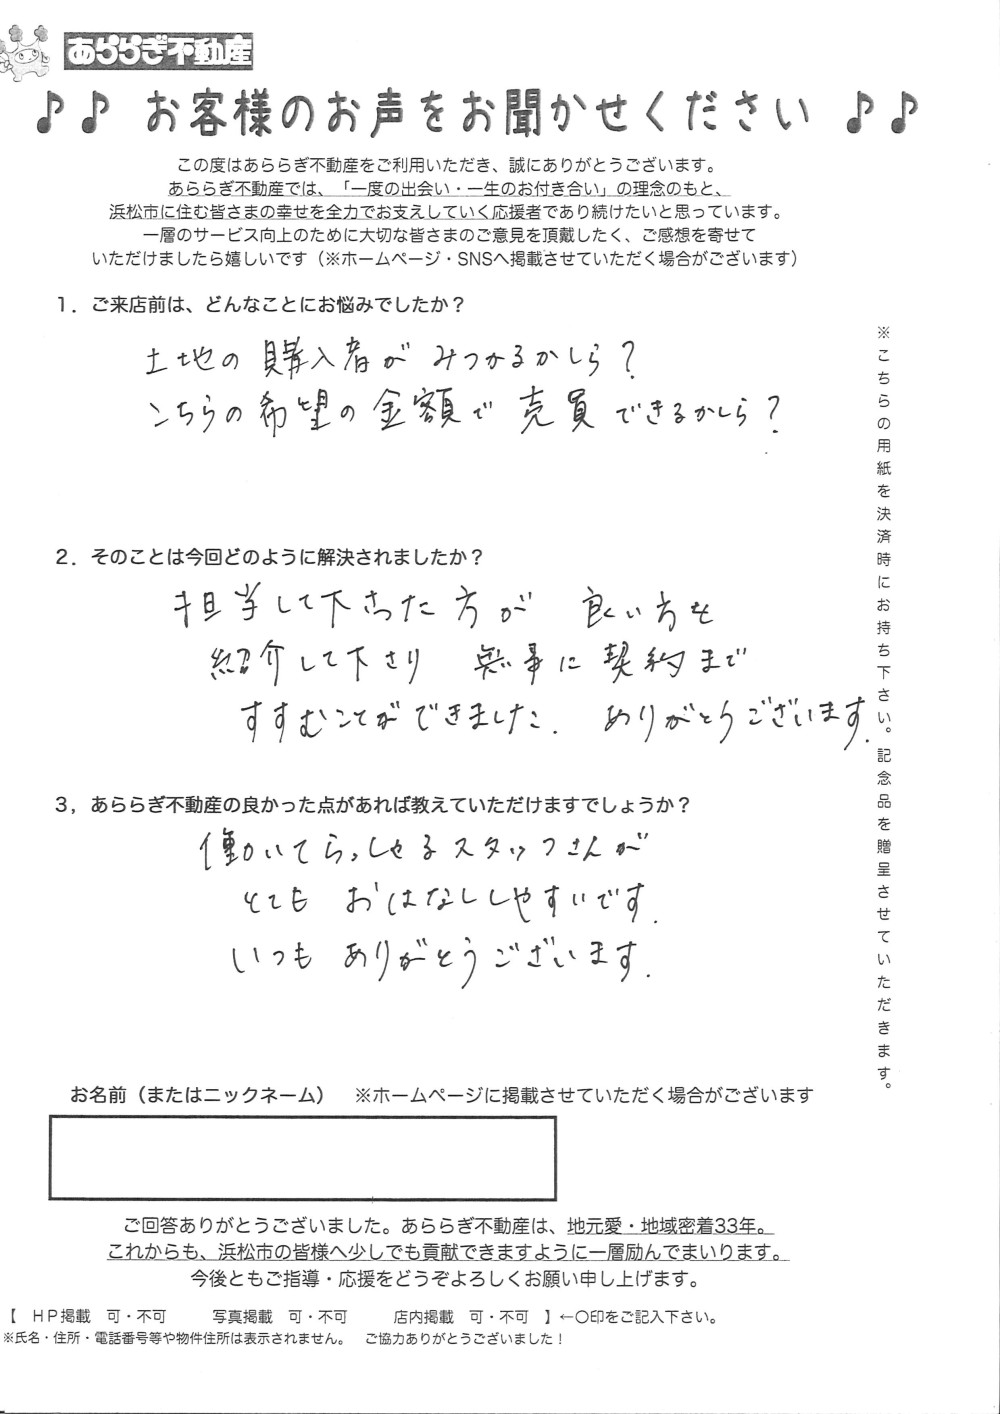 あららぎ不動産
♪♪ お客様のお声をお聞かせください ♪♪
この度はあららぎ不動産をご利用いただき、誠にありがとうございます。
あららぎ不動産では、「一度の出会い・一生のお付き合い」の理念のもと、
浜松市に住む皆さまの幸せを全力でお支えしていく応援者であり続けたいと思っています。
一層のサービス向上のために大切な皆さまのご意見を頂戴したく、ご感想を寄せて
いただけましたら嬉しいです（※ホームページ・SNSへ掲載させていただく場合がございます）
1．ご来店前は、どんなことにお悩みでしたか？
土地の購入者がみつかるかしら？
こちらの希望の金額で売買できるかしら？
2．そのことは今回どのように解決されましたか？
担当して下さった方が 良い方を
紹介して下さり 無事に契約まで
すすむことができました. ありがとうございます.
3，あららぎ不動産の良かった点があれば教えていただけますでしょうか？
働いてらっしゃるスタッフさんが
とても おはなししやすいです.
いつも ありがとうございます.
※こちらの用紙を決済時にお持ち下さい。記念品を贈呈させていただきます。
お名前（またはニックネーム） ※ホームページに掲載させていただく場合がございます
ご回答ありがとうございました。あららぎ不動産は、地元愛・地域密着33年。
これからも、浜松市の皆様へ少しでも貢献できますように一層励んでまいります。
今後ともご指導・応援をどうぞよろしくお願い申し上げます。
【 ＨＰ掲載 可・不可 写真掲載 可・不可 店内掲載 可・不可 】←○印をご記入下さい。
※氏名・住所・電話番号等や物件住所は表示されません。 ご協力ありがとうございました！